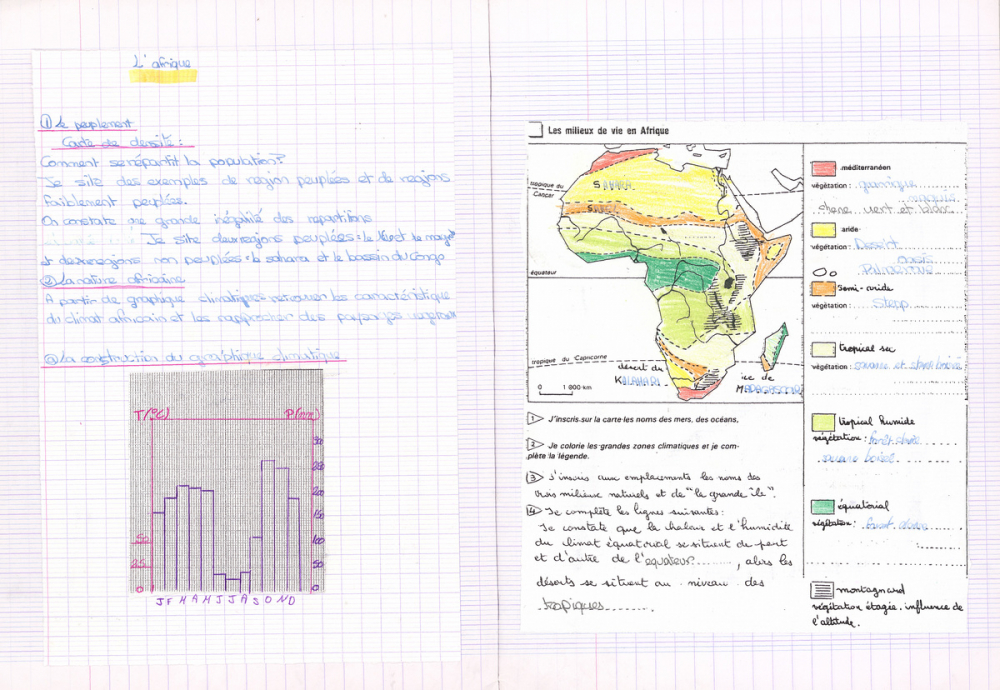 L'afrique
① Le peuplement
Carte de densité :
Comment se répartit la population?
Je site des exemples de région peuplées et de regions
faiblement peuplées.
On constate une grande inégalité des repartitions
Je site deux regions peuplées : le
et deux regions non peuplées : le sahara et le bassin du Congo
② La nature africaine
A partir de graphique climatiques retrouver les caractéristique
du climat africain et les rapprocher des paysages
ⓐ La construction du graphique climatique
T(°C) P(mm)
200
150
50 100
25 50
0 0
J F M A M J J A S O N D
Les milieux de vie en Afrique
tropique du
Cancer
SAHARA
SAHEL
équateur
tropique du Capricorne
désert du
KALAHARI
île de
MADAGASCAR
0 1 800 km
1 J'inscris sur la carte les noms des mers, des océans,
2 Je colorie les grandes zones climatiques et je com-
plète la légende.
3 J'inscris aux emplacements les noms des
trois milieux naturels et de "la grande île".
4 Je complète les lignes suivantes :
Je constate que la chaleur et l'humidité
du climat équatorial se situent de part
et d'autre de l'equateur?........, alors les
déserts se situent au niveau des
tropiques........
méditerranéen
végétation : garrigue
maquis
chene vert et blanc
aride
végétation : Désert
oasis
semi-aride
végétation : Stepp
tropical sec
végétation : savane et
tropical humide
végétation : forêt claire
savane boisé
équatorial
végétation : foret dense
montagnard
végétation étagée. influence de
l'altitude.